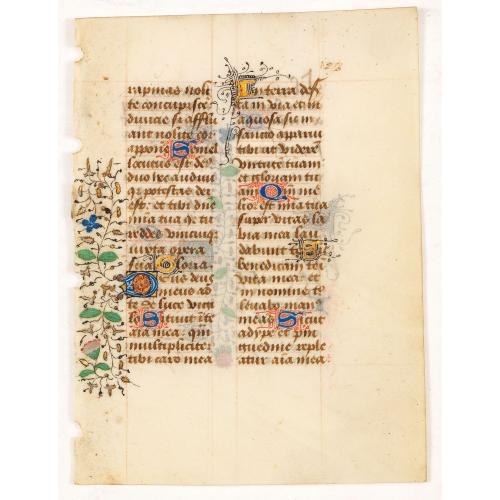 rapinas noli
te concupisce
divicie si afflu
ant nolite cor
apponē Semel
locutus est de9
duo hec audivi
quia potestas dei
est et tibi dn̄e
mīa tua q̄ tu
reddes unicuiq3
iuxta opera
sua Gloria
Deus deus
meus ad
te de luce vigi
lo Sitivit ī te
aīa mea q̄m
multipliciter
tibi caro mea
In terra des
ta in via et in
aquosa sic in
sancto apparui
tibi ut viderē
virtutē tuam
et gloriam tuā
Qm̄ me
lior est mīa tua
super vitas la
bia mea lau
dabunt te Sic
benedicam te ī
vita mea et
in nomine tuo
levabo man9
meas Sicut
adype et pin
guedine reple
atur aīa mea